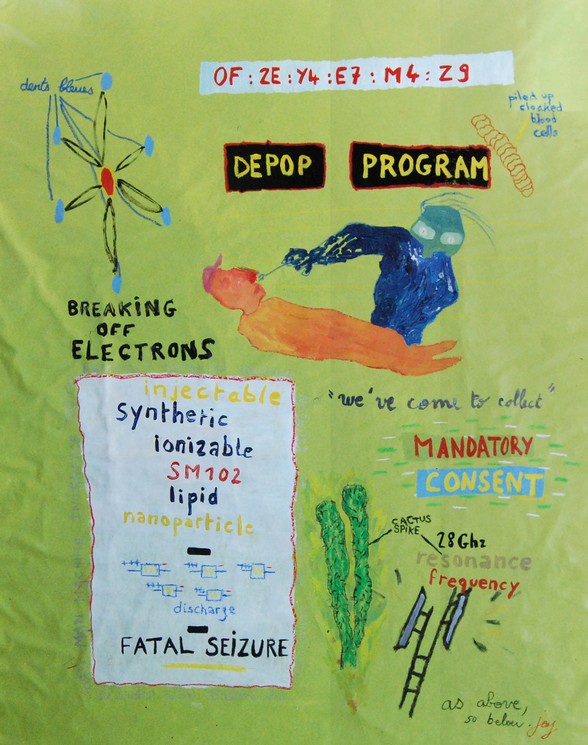 OF:2E:Y4:E7:M4:Z9
dents bleues
piled up
clocked
blood
cells
DEPOP PROGRAM
BREAKING
OFF
ELECTRONS
"we've come to collect"
MANDATORY
CONSENT
injectable
synthetic
ionizable
SM102
lipid
nanoparticle
discharge
FATAL SEIZURE
CACTUS
SPIKE
28Ghz
resonance
frequency
as above,
so below. joy